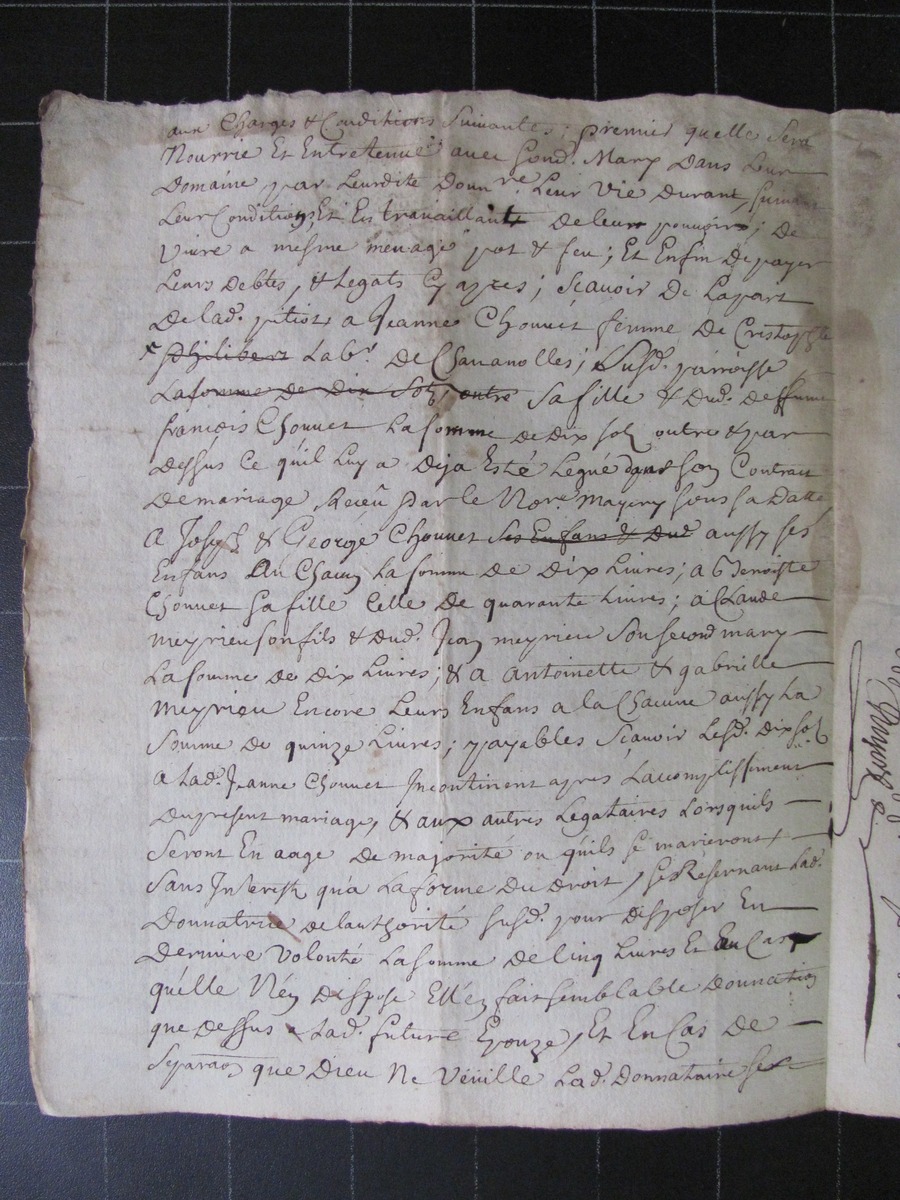 aux Charges & Conditions Suivantes; premier quelle Sera
Nourrie Et Entretenue avec sond. Mary Dans Leur
Domaine par Leurdite Donnre Leur Vie Durant, suivant
Leur Condition Et En travaillant de leur pouvoir; De
Vivre a mesme menage pot & feu; Et Enfin De payer
Leurs Debtes, & Legats Cy apres; Scavoir De Lapart
De lad. pitiot a Jeanne Chouvet femme De Cristophle
Philibert Labr. De Chavanolles; Susd. parroisse
La somme de Dix Sols, outre Sa fille & Dud. Deffunt
francois Chouvet La somme de dix sols outre & par
dessus Ce quil Luy a Deja Esté Legué dans son Contract
De mariage Receu Par le Nore. Mayery sous sa Datte
A Joseph & George Chouvet Ses Enfans & Dud aussy ses
Enfans Au Chacun La somme De Dix Livres; a Benoiste
Chouvet sa fille Celle De quarante Livres; a Claude
Meyrieu son fils & Dud. Jean meyrieu Son Second mary
La somme De Dix Livres; & a Antoinette & gabrielle
Meyrieu Encore Leurs Enfans a la Chacune aussy La
Somme De quinze Livres; payables Scavoir Lesd. dix sols
a Lad. Jeanne Chouvet Incontinent apres Lacomplissement
Du present mariage, & aux autres Legataires Lorsquils
Seront En aage De majorite ou quils se marieront
Sans Interest qu'a La forme Du Droit, se Reservant Lad.
Donnatrice de lauthorité susd. pour disposer En
Derniere Volonté La somme De Cinq Livres Et En Cas
qu'elle N'en dispose Ell'en fait semblable Donnation
que dessus a Lad. future Epouze, Et En Cas De
Separaon que Dieu Ne Veüille Lad. Donnataire se